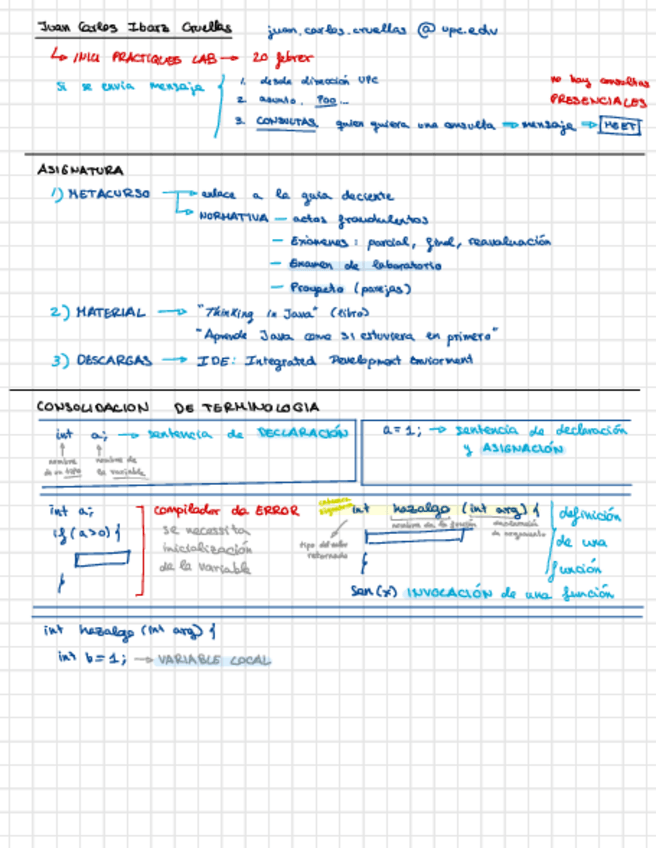 Juan Carlos Ibarz Cruellas juan.carlos.cruellas @ upc.edu
INICI PRACTIQUES LAB → 20 febrer
Si se envia mensaje
1. desde dirección UPC
2. asunto. Poo...
3. CONSULTAS quien quiera una consulta → mensaje → MEET
no hay consultas
PRESENCIALES
ASIGNATURA
1) METACURSO → enlace a la guia docente
NORMATIVA — actos fraudulentos
— Exámenes: parcial, final, reavaluación
— Examen de laboratorio
— Proyecto (parejas)
2) MATERIAL → "Thinking in Java" (libro)
"Aprende Java como si estuviera en primero"
3) DESCARGAS → IDE: Integrated Development Enviorment
CONSOLIDACION DE TERMINOLOGIA
int a; → sentencia de DECLARACIÓN
nombre de un tipo
nombre de la variable
a = 1; → sentencia de declaración
y ASIGNACIÓN
int a;
if (a>0) {
}
compilador da ERROR
se necesita
inicialización
de la variable
int hazalgo (int arg) {
nombre de la función
declaración de argumento
tipo del valor
retornado
}
definición
de una
función
San(x) INVOCACIÓN de una función
int hazalgo (int arg) {
int b = 1; → VARIABLE LOCAL